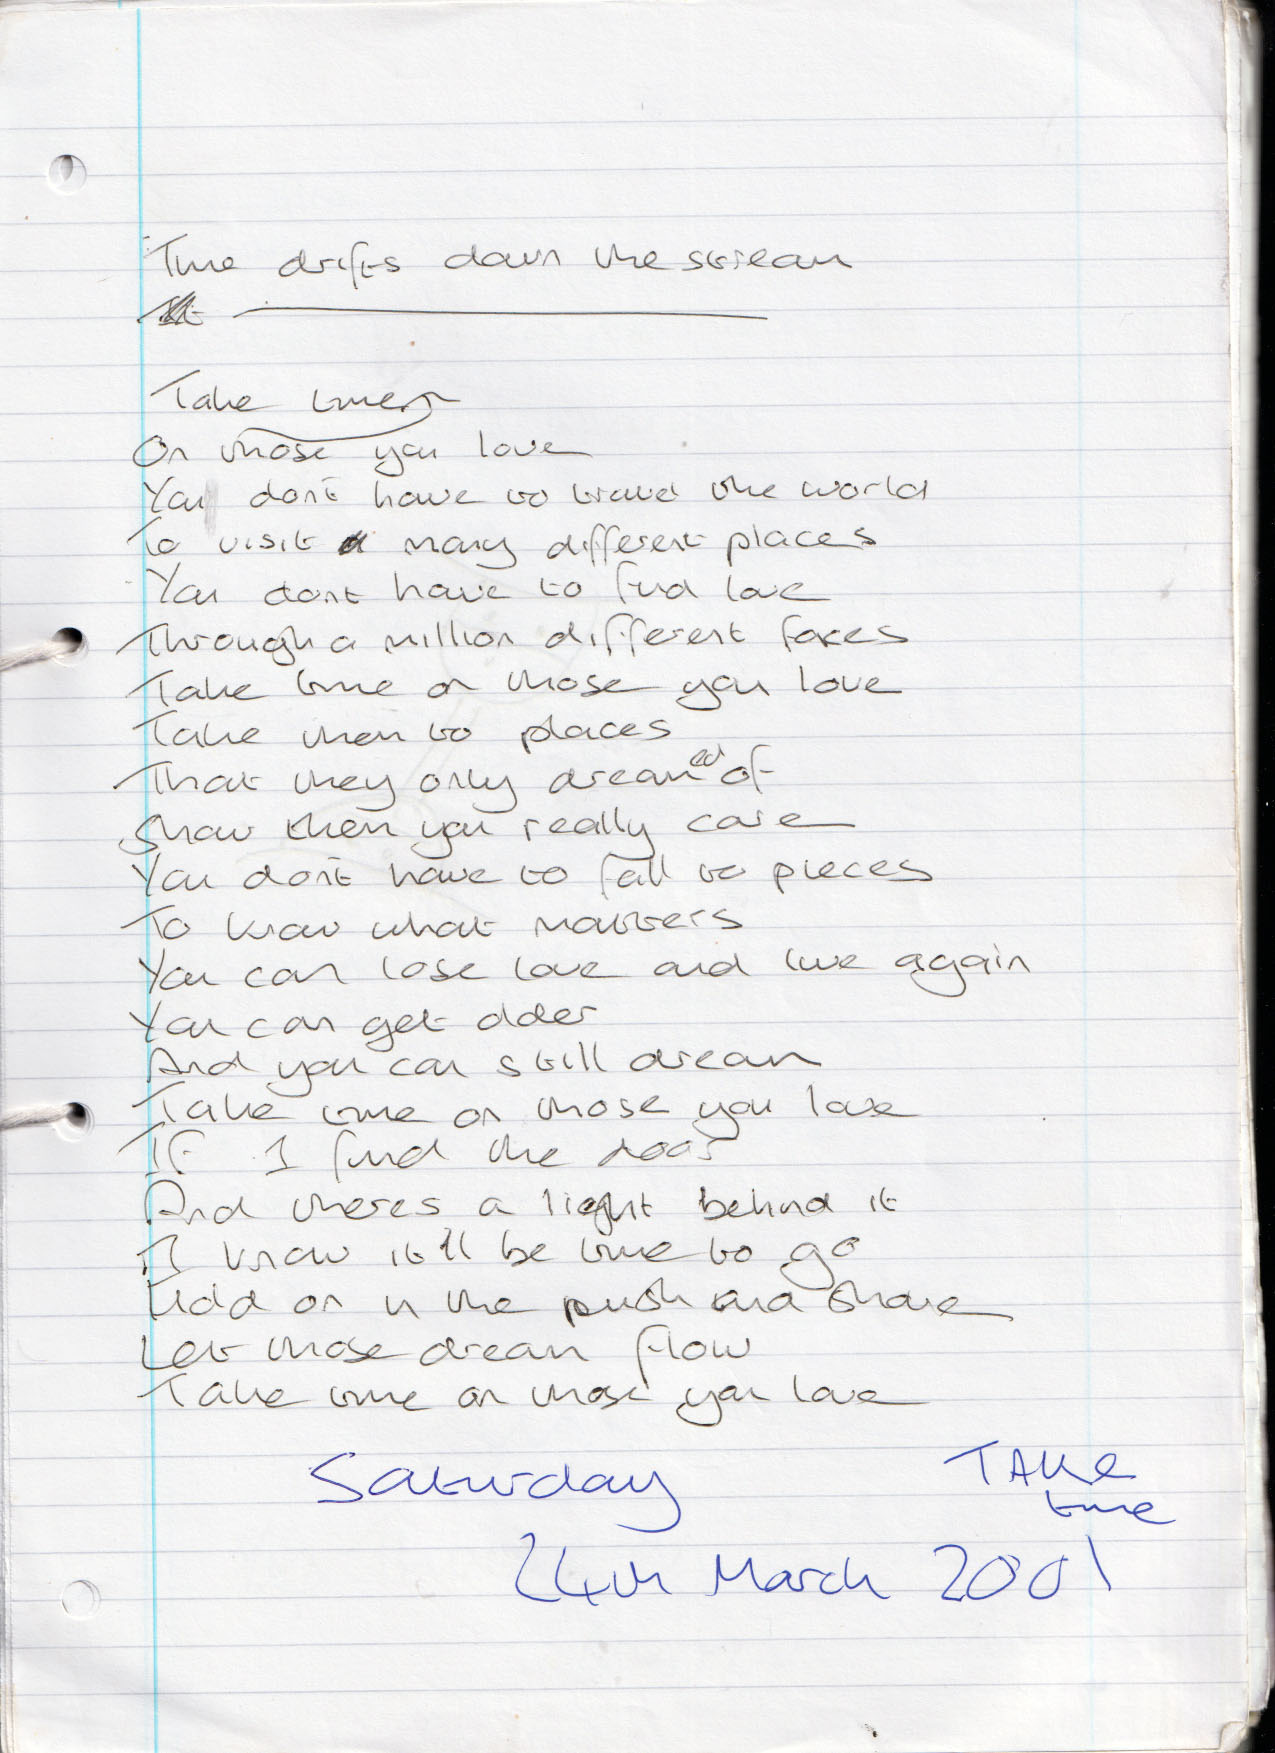 Time drifts down the stream
Take time
On those you love
You dont have to travel the world
To visit many different places
You dont have to find love
Through a million different faces
Take time on those you love
Take them to places
That they only dreamed of
Show them you really care
You dont have to fall to pieces
To know what matters
You can lose love and live again
You can get older
And you can still dream
Take time on those you love
If I find the door
And theres a light behind it
I know it'll be time to go
Hold on in the push and shove
Let those dream flow
Take time on those you love
Saturday TAKe
time
24th March 2001